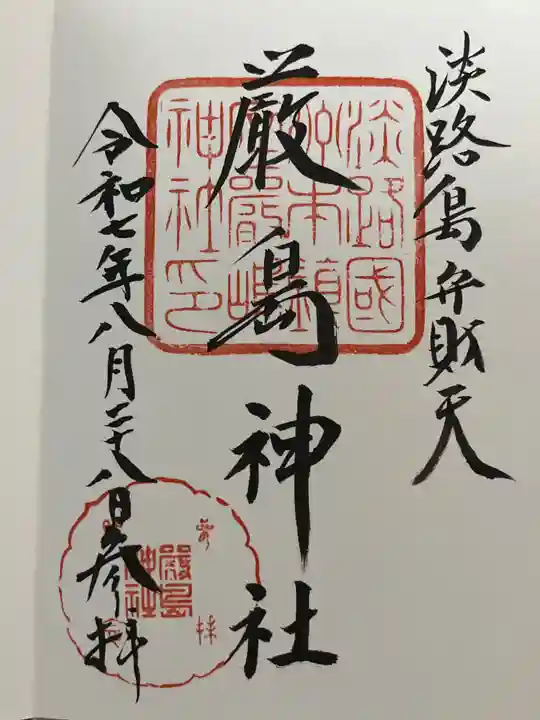 淡路島弁財天
厳島神社
令和七年八月二十八日参拝
淡路國
洲本鎮
座嚴嶋
神社印
嚴島
神社